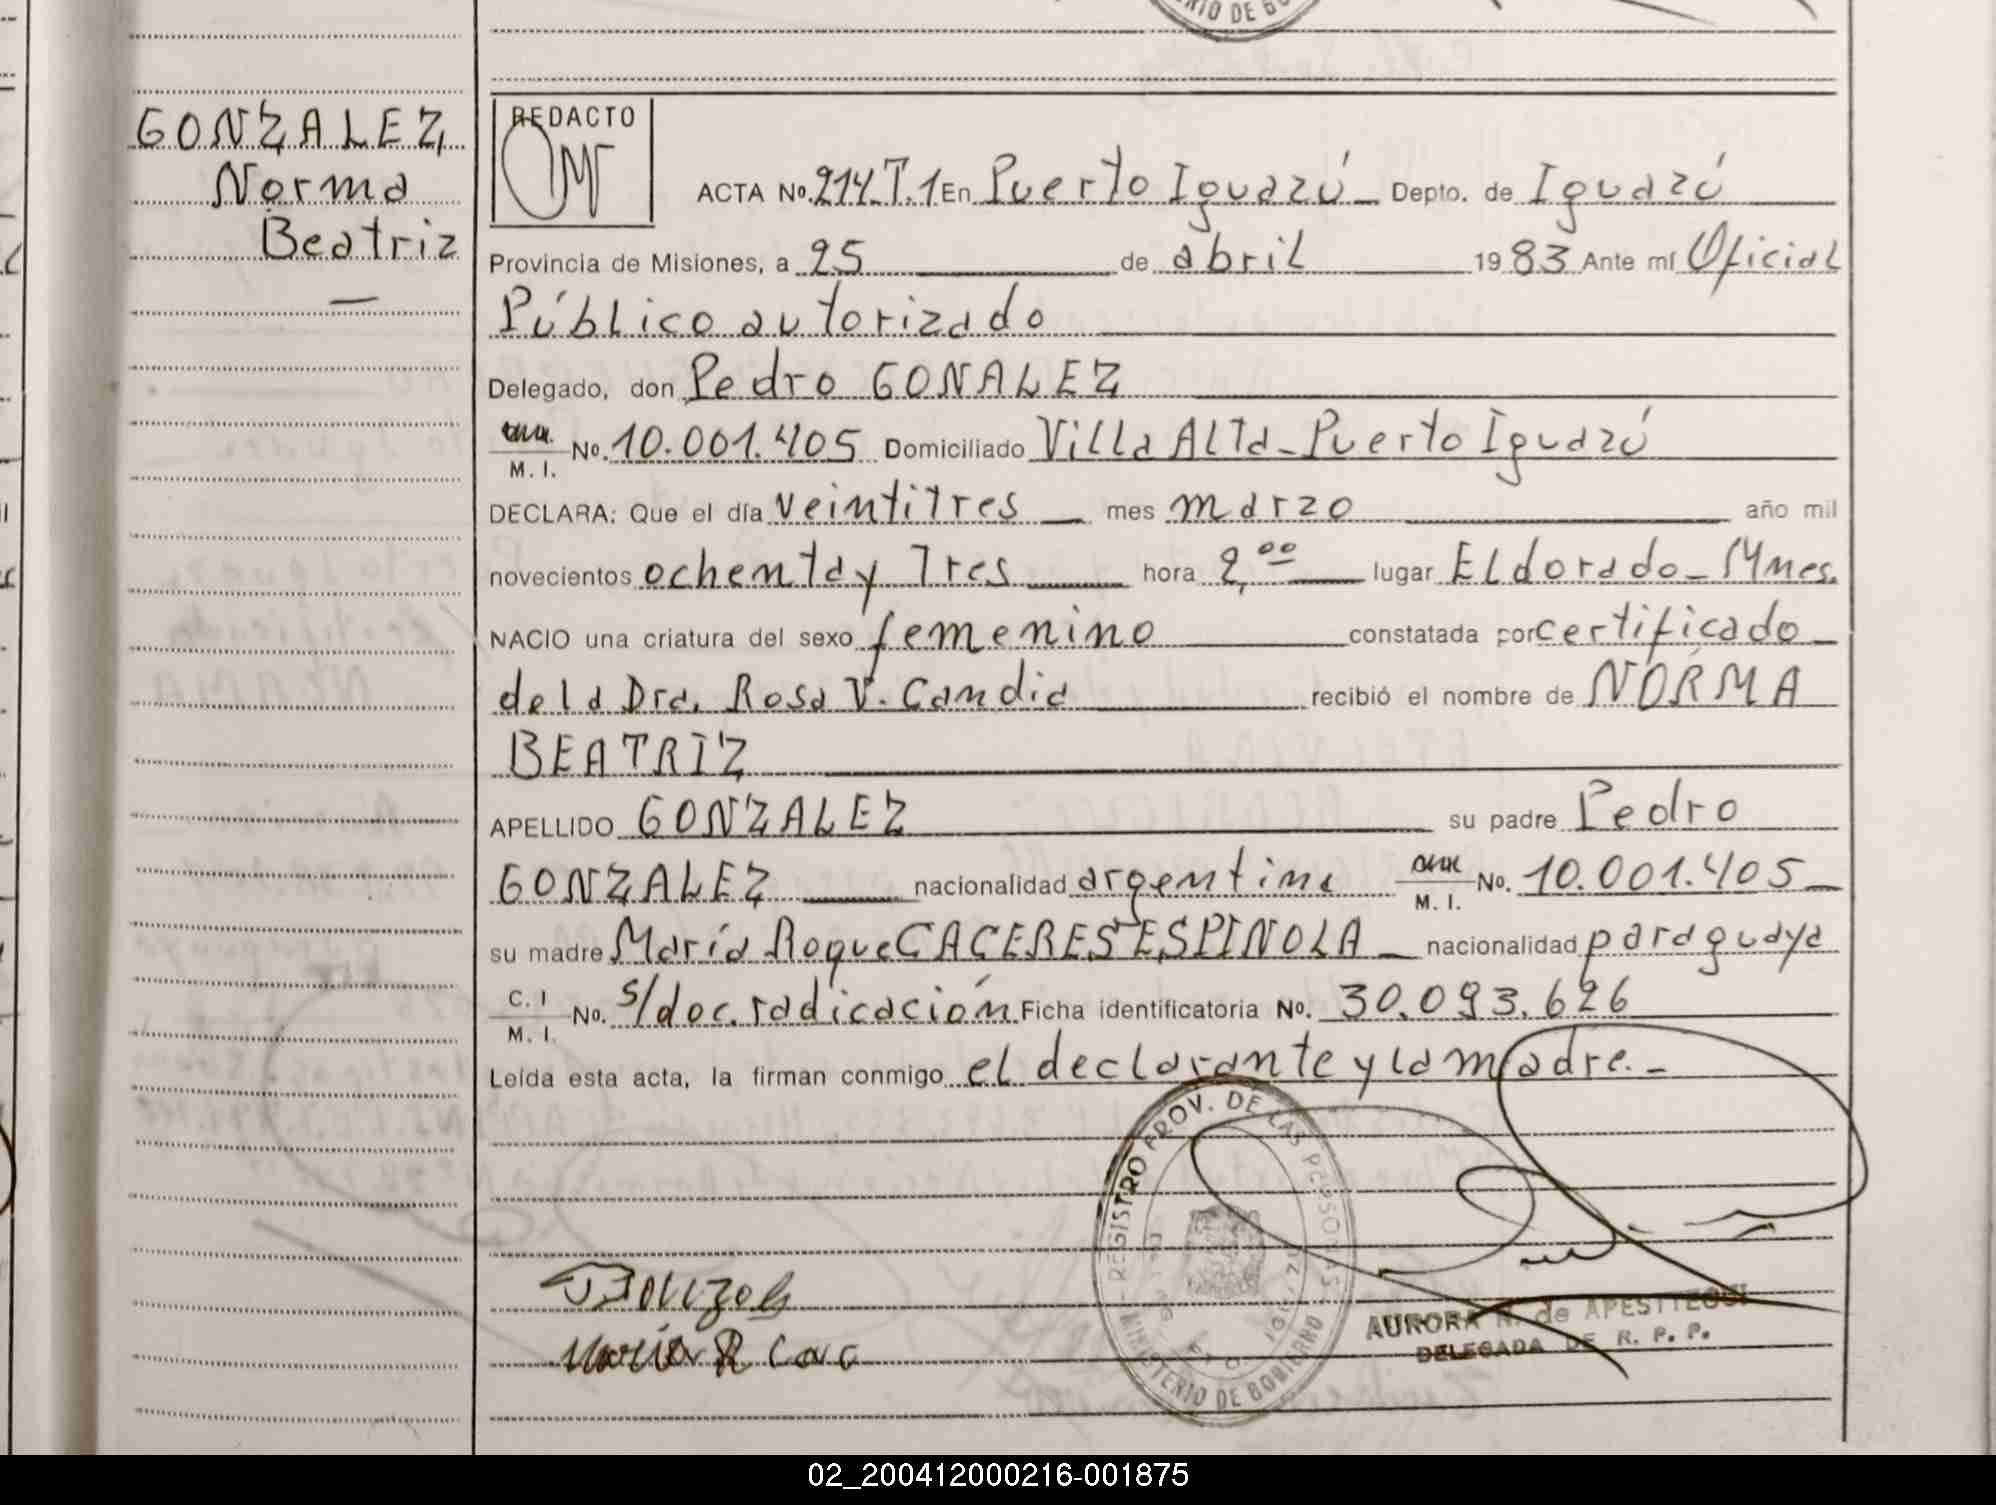 GONZALEZ,
Norma
Beatriz
—
REDACTO
ACTA No. 214.T.1 En Puerto Iguazú Depto. de Iguazú
Provincia de Misiones, a 25 de abril 1983 Ante mí Oficial
Público autorizado
Delegado, don Pedro GONALEZ
M. I. No. 10.001.405 Domiciliado Villa Alta-Puerto Iguazú
DECLARA: Que el día veintitres mes marzo año mil
novecientos ochenta y Tres hora 2,00 lugar Eldorado-Mnes.
NACIO una criatura del sexo femenino constatada por certificado
de la Dra. Rosa V. Candia recibió el nombre de NORMA
BEATRIZ
APELLIDO GONZALEZ su padre Pedro
GONZALEZ nacionalidad argentina M. I. No. 10.001.405
su madre María Roque CACERES ESPINOLA nacionalidad paraguaya
C. I M. I. No. s/doc. radicación Ficha identificatoria No. 30.093.626
Leída esta acta, la firman conmigo el declarante y la madre.-
REGISTRO PROV. DE LAS PERSONAS
MINISTERIO DE GOBIERNO
AURORA N. de APESTTEGUI
DELEGADA DE R. P. P.
02_200412000216-001875